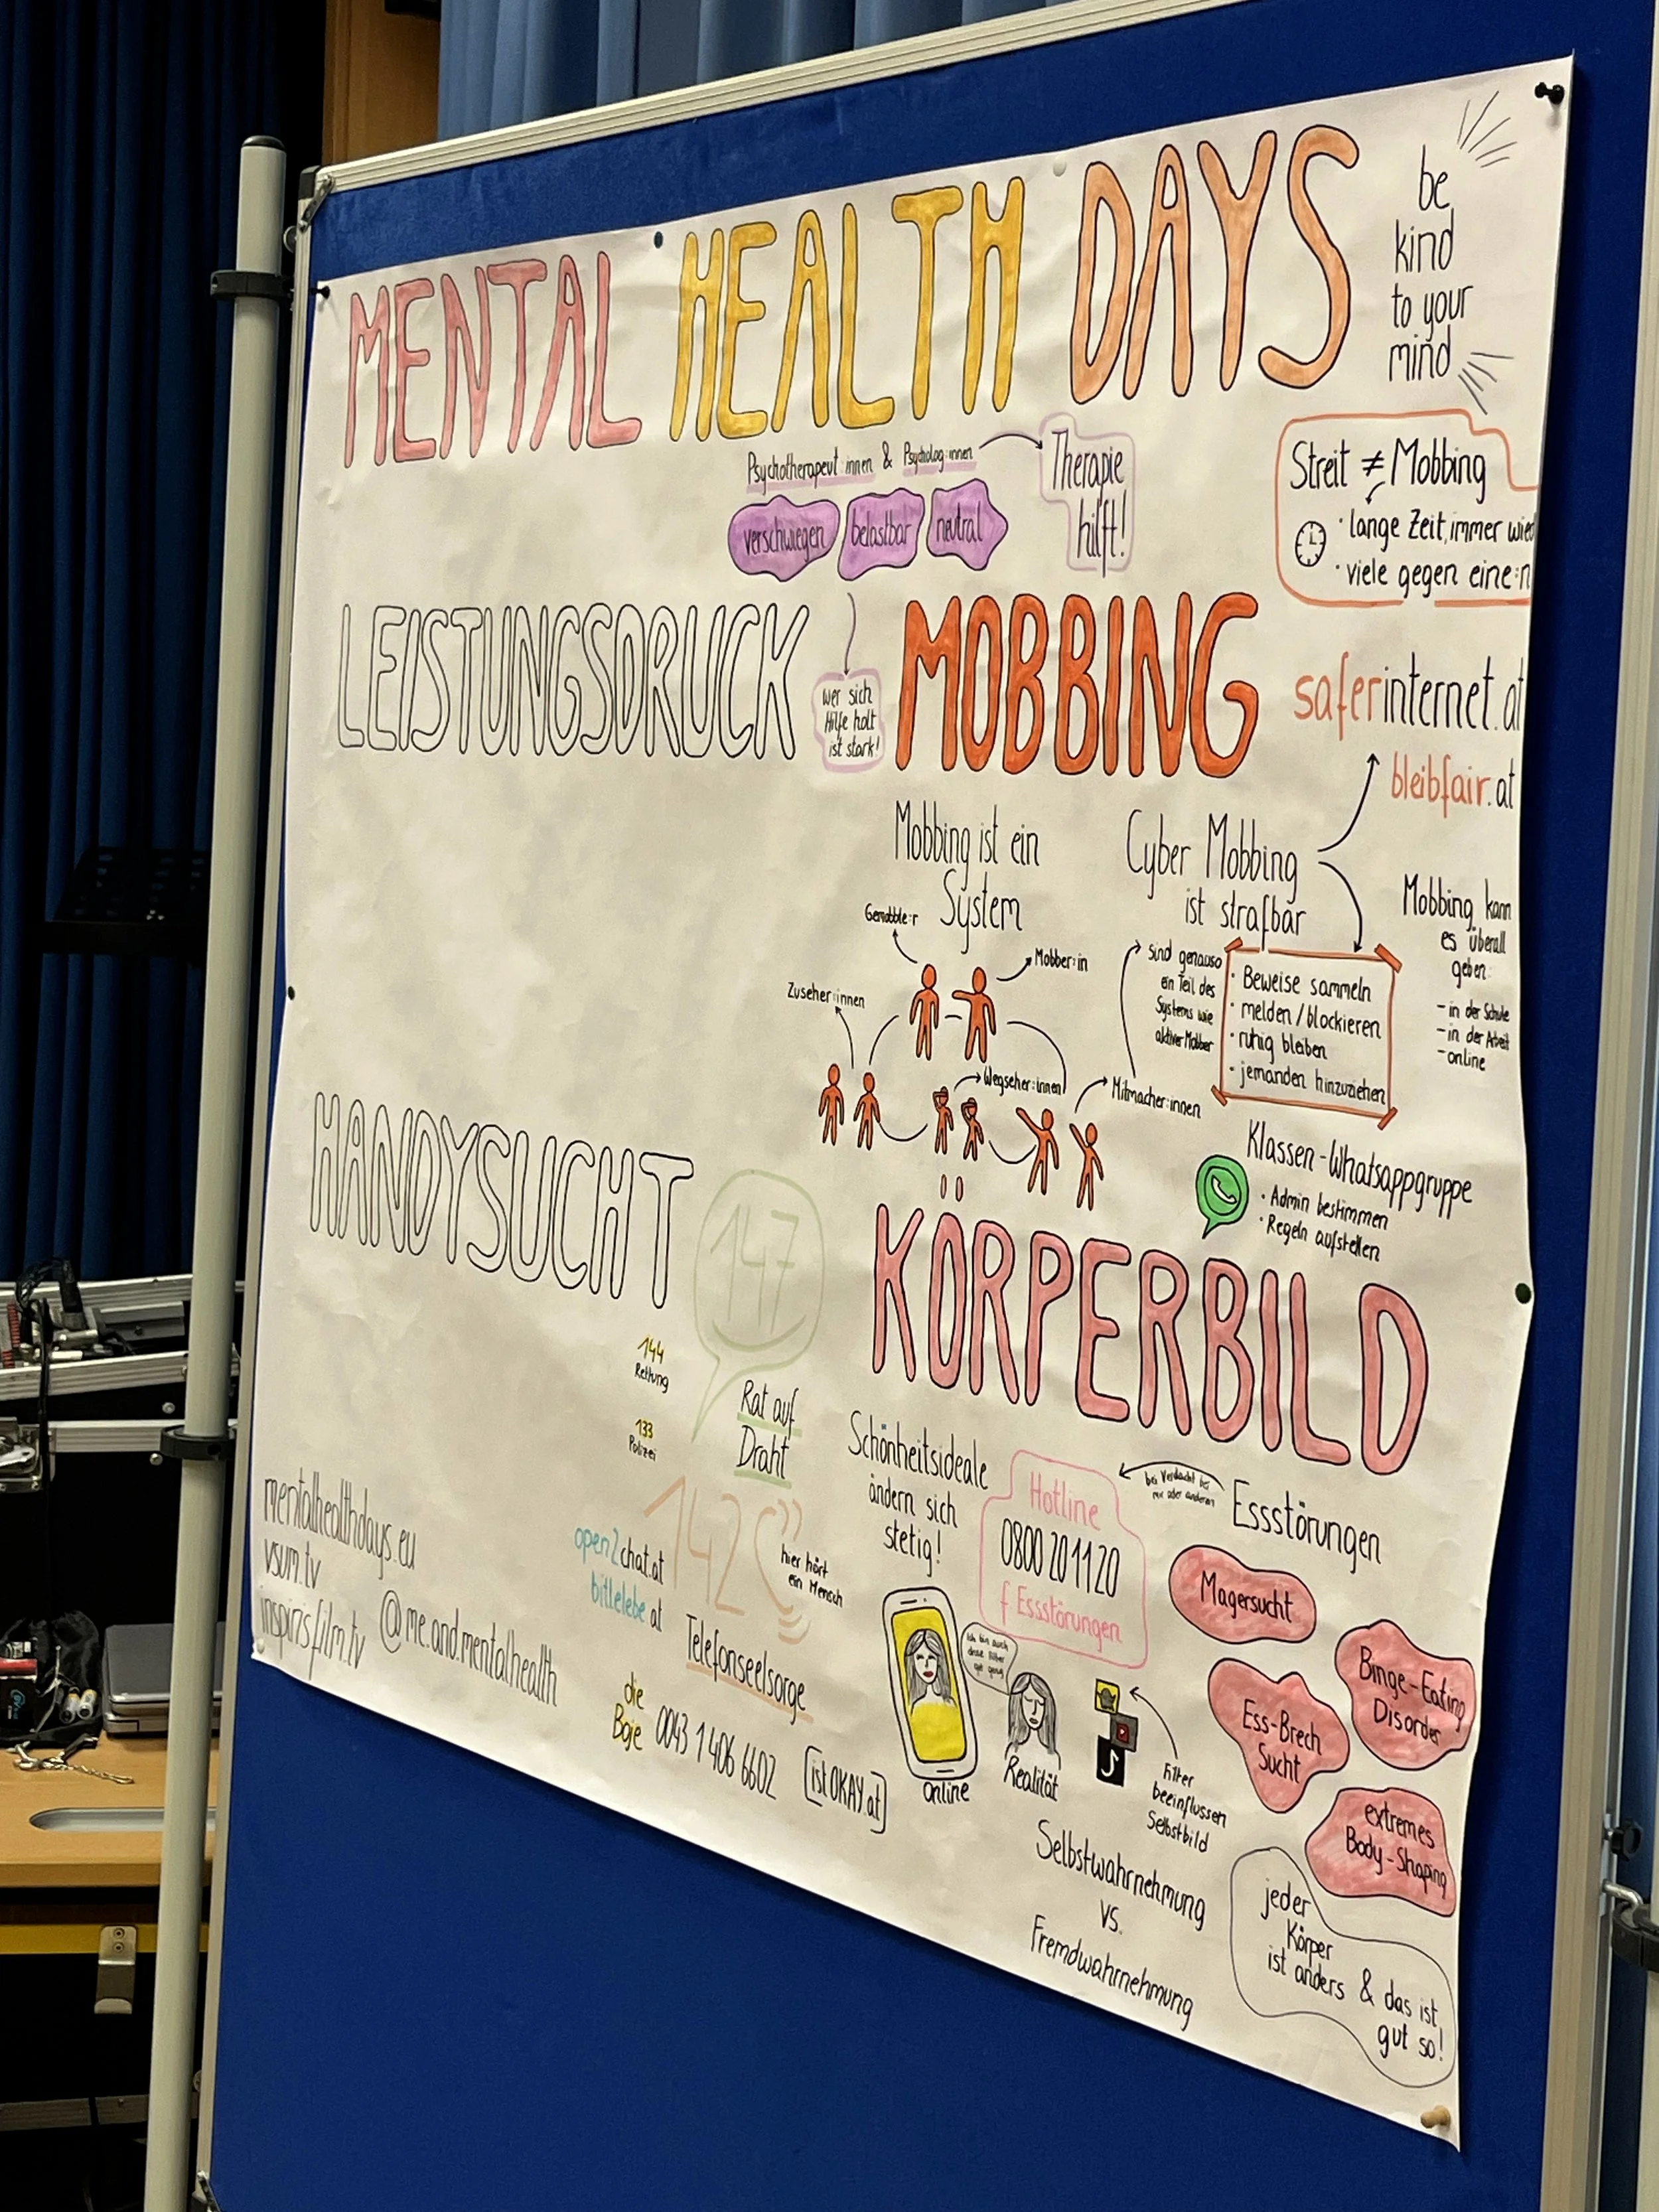 MENTAL HEALTH DAYS
be
kind
to your
mind
Psychotherapeut:innen & Psycholog:innen
verschwiegen
belastbar
neutral
Therapie
hilft!
wer sich
Hilfe holt
ist stark!
Streit ≠ Mobbing
· lange Zeit, immer wied
· viele gegen eine:n
LEISTUNGSDRUCK
MOBBING
saferinternet.at
bleibfair.at
Mobbing ist ein
System
Gemobbte:r
Mobber:in
Zuseher:innen
Wegseher:innen
Mitmacher:innen
sind genauso
ein Teil des
Systems wie
aktiver Mobber
Cyber Mobbing
ist strafbar
· Beweise sammeln
· melden/blockieren
· ruhig bleiben
· jemanden hinzuziehen
Mobbing kann
es überall
geben:
- in der Schule
- in der Arbeit
- online
Klassen-Whatsappgruppe
· Admin bestimmen
· Regeln aufstellen
HANDYSUCHT
147
Rat auf
Draht
144
Rettung
133
Polizei
142
hier hört
ein Mensch
Telefonseelsorge
open2chat.at
bittelebe.at
die
Boje
0043 1 406 6602
[istOKAY.at]
mentalhealthdays.eu
vsum.tv
inspirisfilm.tv
@me.and.mentalhealth
KÖRPERBILD
Schönheitsideale
ändern sich
stetig!
Hotline
0800 20 11 20
f Essstörungen
bei Verdacht bei
mir oder anderen
Essstörungen
Magersucht
Binge-Eating
Disorder
Ess-Brech
Sucht
extremes
Body-Shaping
Ich bin auch
ohne Filter
gut genug
Online
Realität
Filter
beeinflussen
Selbstbild
Selbstwahrnehmung
vs.
Fremdwahrnehmung
jeder
Körper
ist anders & das ist
gut so!